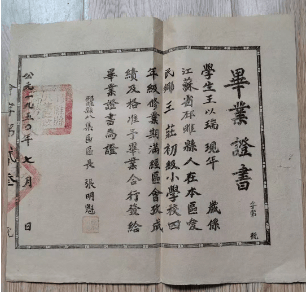 畢業證書
字第 號
學生王以瑞現年 歲係
江蘇省邳睢縣人在本區愛
民鄉王莊初級小學校四
年級修業期滿經區會攷成
績及格准予畢業合行發給
畢業證書為證
八集區區長 張明
公元一九五〇年七月 日